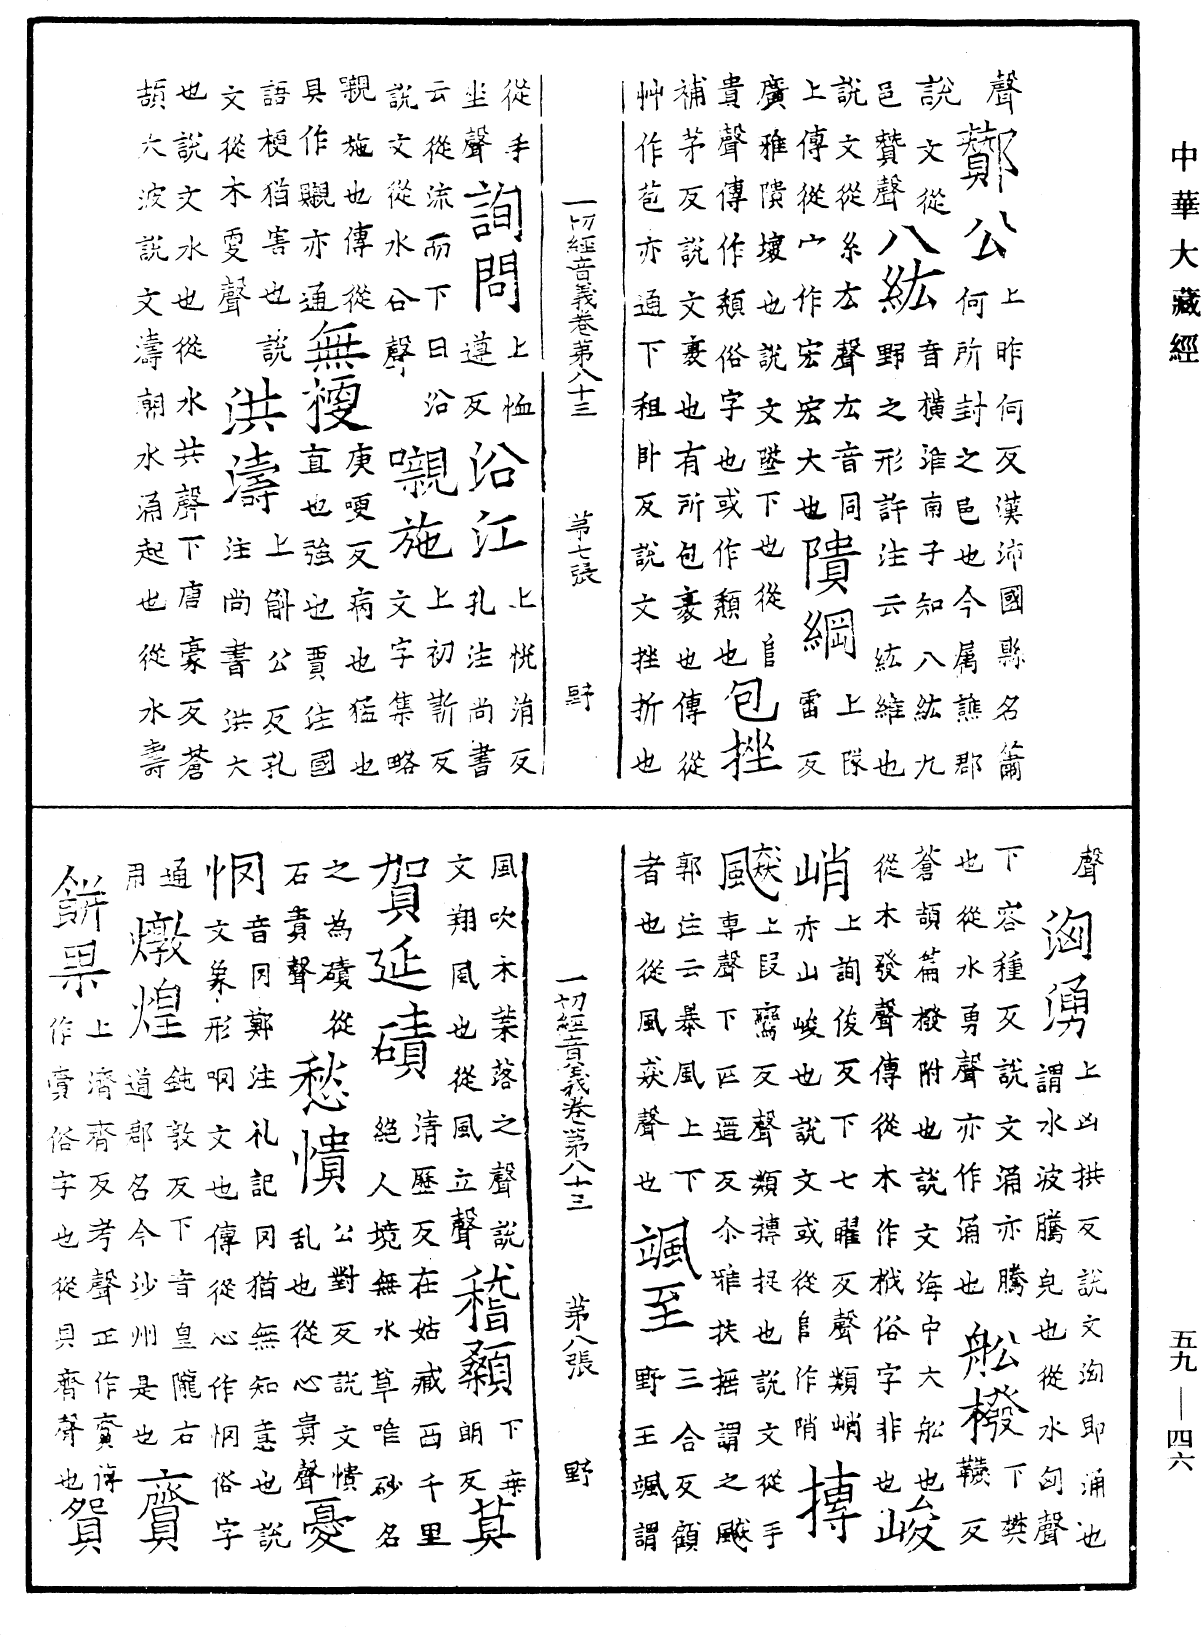 中華大藏經
聲
酇公上昨何反漢沛國縣名蕭
何所封之邑也今属譙郡
說文從
邑贊聲
八紘音橫淮南子知八紘九
野之形許注云紘維也
說文從糸厷聲厷音同
上傳從宀作宏宏大也
隤綱上隊
雷反
廣雅隤壞也說文墜下也從𨸏
貴聲傳作頽俗字也或作頹也
包挫
補茅反說文裹也有所包裹也傳從
艸作苞亦通下租卧反說文挫折也
一切經音義卷第八十三 第七張 野
從手
坐聲
詢問上恤
遵反
沿江上恱涓反
孔注尚書
云從流而下曰沿
說文從水㕣聲
嚫施上初靳反
文字集略
嚫施也傳從
具作䞋亦通
無梗庚哽反病也猛也
直也強也賈注國
語梗猶害也說
文從木㪅聲
洪濤上斛公反孔
注尚書洪大
也說文水也從水共聲下唐豪反蒼
頡大波說文濤潮水涌起也從水壽
聲
洶湧上凶拱反說文洶即涌也
謂水波騰皃也從水匈聲
下容種反說文涌亦騰
也從水勇聲亦作涌也
舩橃下樊
韈反
蒼頡篇橃附也說文海中大船也
從木發聲傳從木作栰俗字非也
峻
峭上詢俊反下七曜反聲類峭
亦山峻也說文或從𨸏作陗
搏
風上段鸞反聲類摶捉也說文從手
專聲下匹遥反尒雅扶搖謂之飈
猋
郭注云暴風上下
者也從風猋聲也
颯至三合反顧
野王颯謂
一切經音義卷第八十三 第八張 野
風吹木葉落之聲說
文翔風也從風立聲
稽顙下桒
朗反
莫
賀延磧清歷反在姑臧西千里
絕人境無水草唯砂名
之為磧從
石責聲
愁憒公對反說文憒
乱也從心貴聲
憂
惘音罔鄭注礼記罔猶無知意也說
文象形𦉪文也傳從心作惘俗字
通
用
燉煌鈍敦反下音皇隴右
道郡名今沙州是也
齎
賀
餅果上濟齊反考聲正作齎俗
作賷俗字也從貝齊聲也
五九—四六